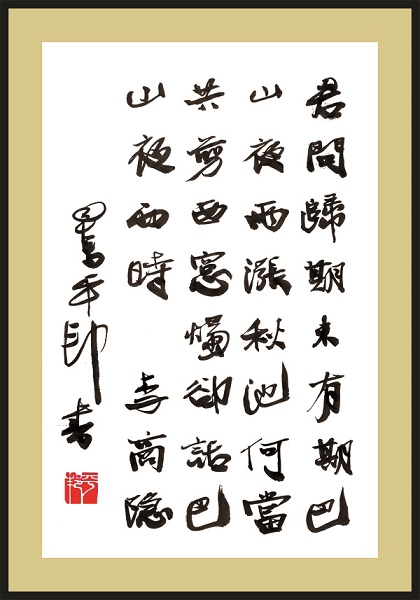 君問歸期未有期巴
山夜雨漲秋池何當
共剪西窓燭卻話巴
山夜雨時 李商隐
書